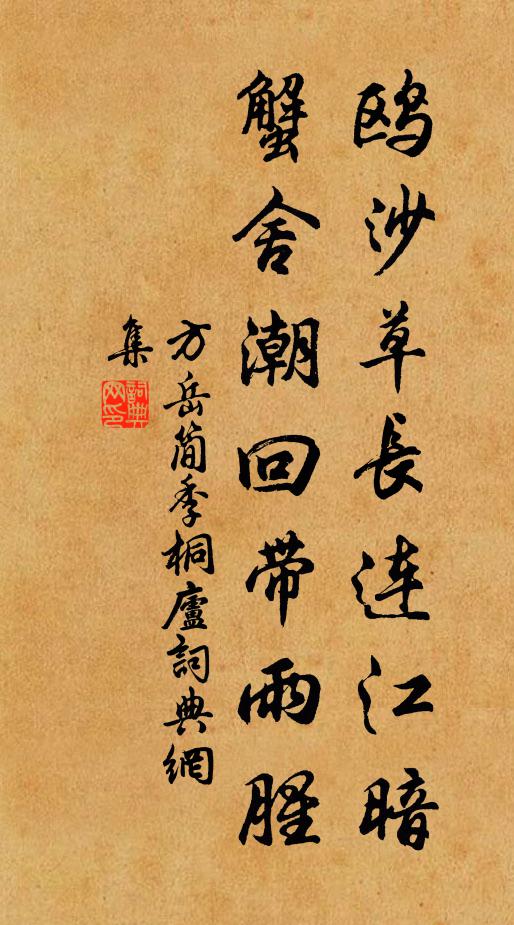 鸥沙草長連江暗
蟹舍潮回帶雨腥
方岳簡季桐廬詞典網
集
詞典網印